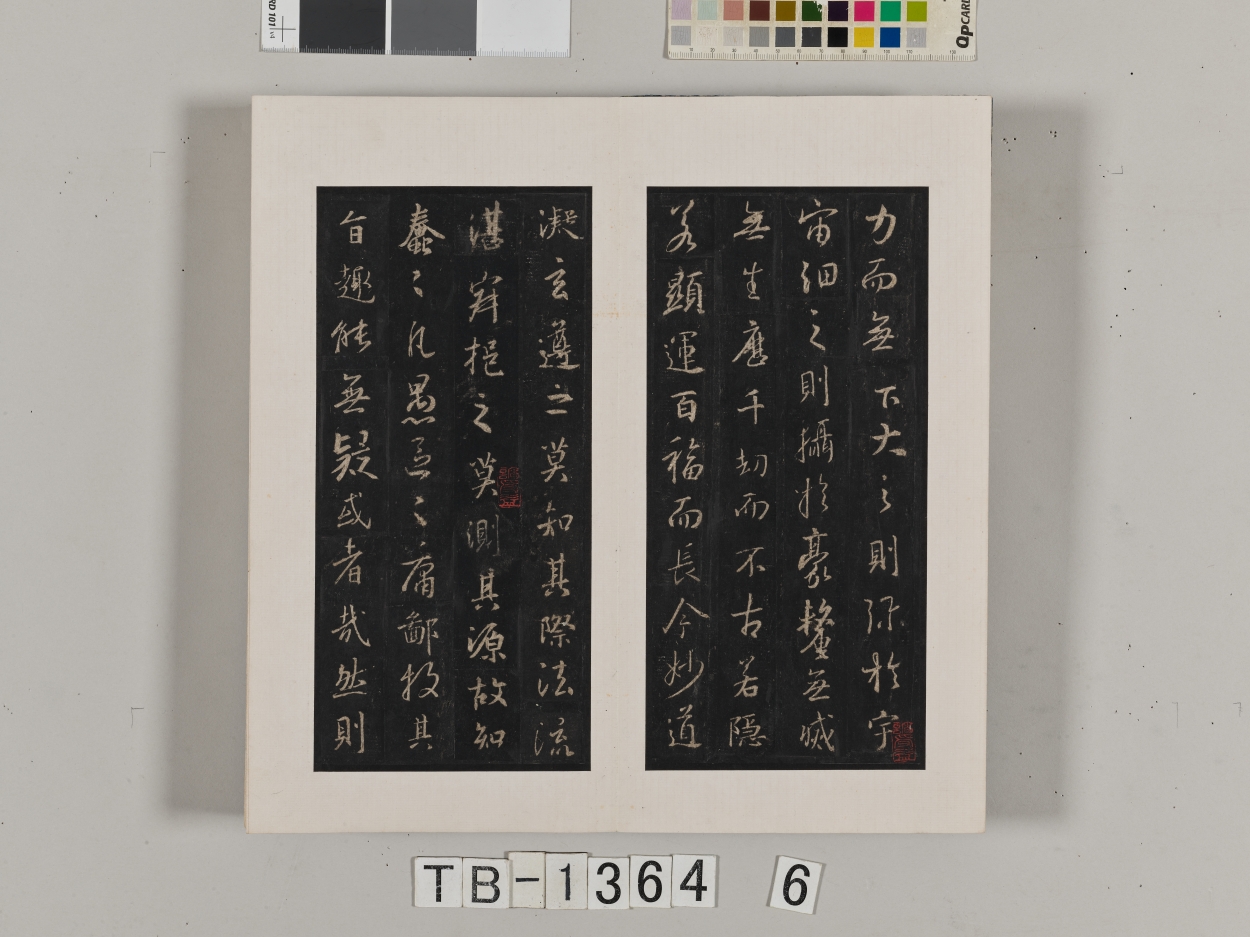 力而無下大之則弥於宇
宙細之則攝於豪釐無滅
無生歷千劫而不古若隱
若顯運百福而長今妙道
凝玄遵之莫知其際法流
湛寂挹之莫測其源故知
蠢〻凡愚區〻庸鄙投其
旨趣能無疑或者哉然則
TB-1364 6